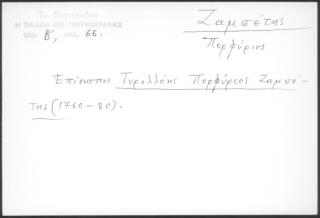 Τρ. Εὐαγγελίδου
Η ΠΑΙΔΕΙΑ ΕΠΙ ΤΟΥΡΚΟΚΡΑΤΙΑΣ
τόμ. Β', σελ. 66.
Ζαμπέτης
Πορφύριος
Ἐπίσκοπος Τυρολλόης Πορφύριος Ζαμπέ-
της (1760-80).